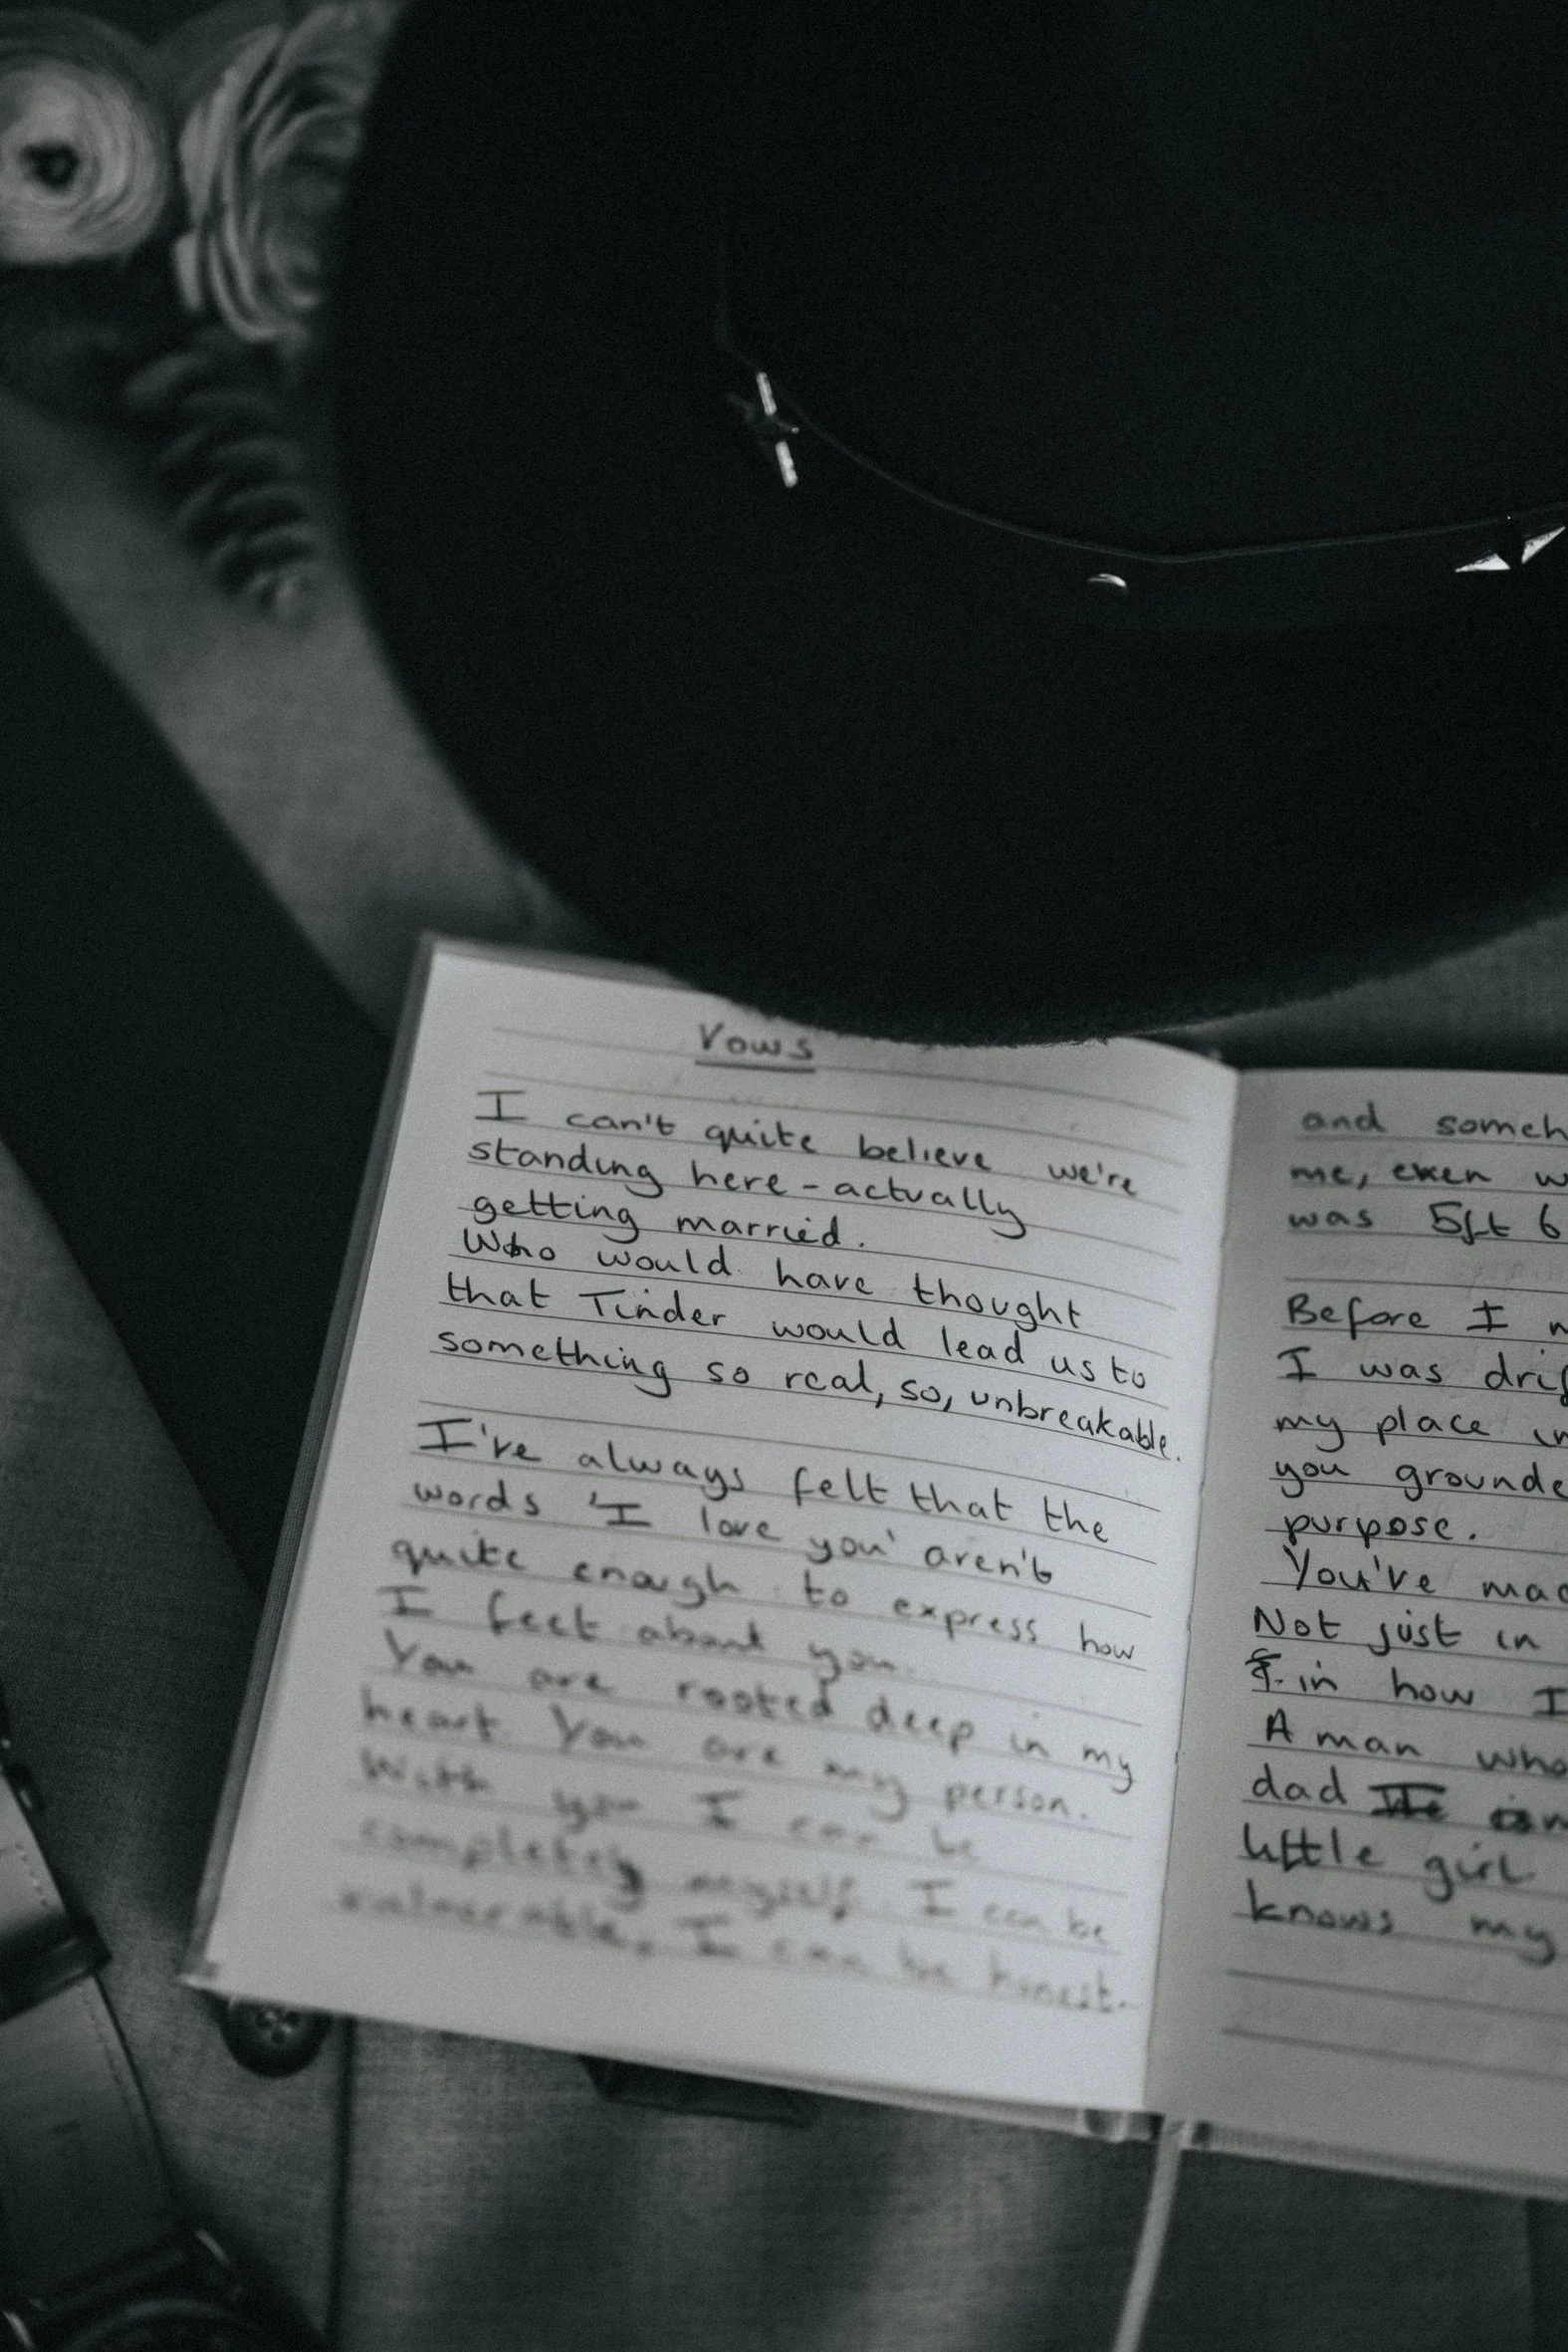 Vows
I can't quite believe we're
standing here - actually
getting married.
Who would have thought
that Tinder would lead us to
something so real, so, unbreakable.
I've always felt that the
words 'I love you' aren't
quite enough to express how
I feel about you.
You are rooted deep in my
heart. You are my person.
With you I can be
completely myself. I can be
vulnerable, I can be honest.
and
me, even
was 5ft 6
Before I
I was
my place
you
purpose.
You've
Not just in
in how I
A man
dad
little girl
knows my